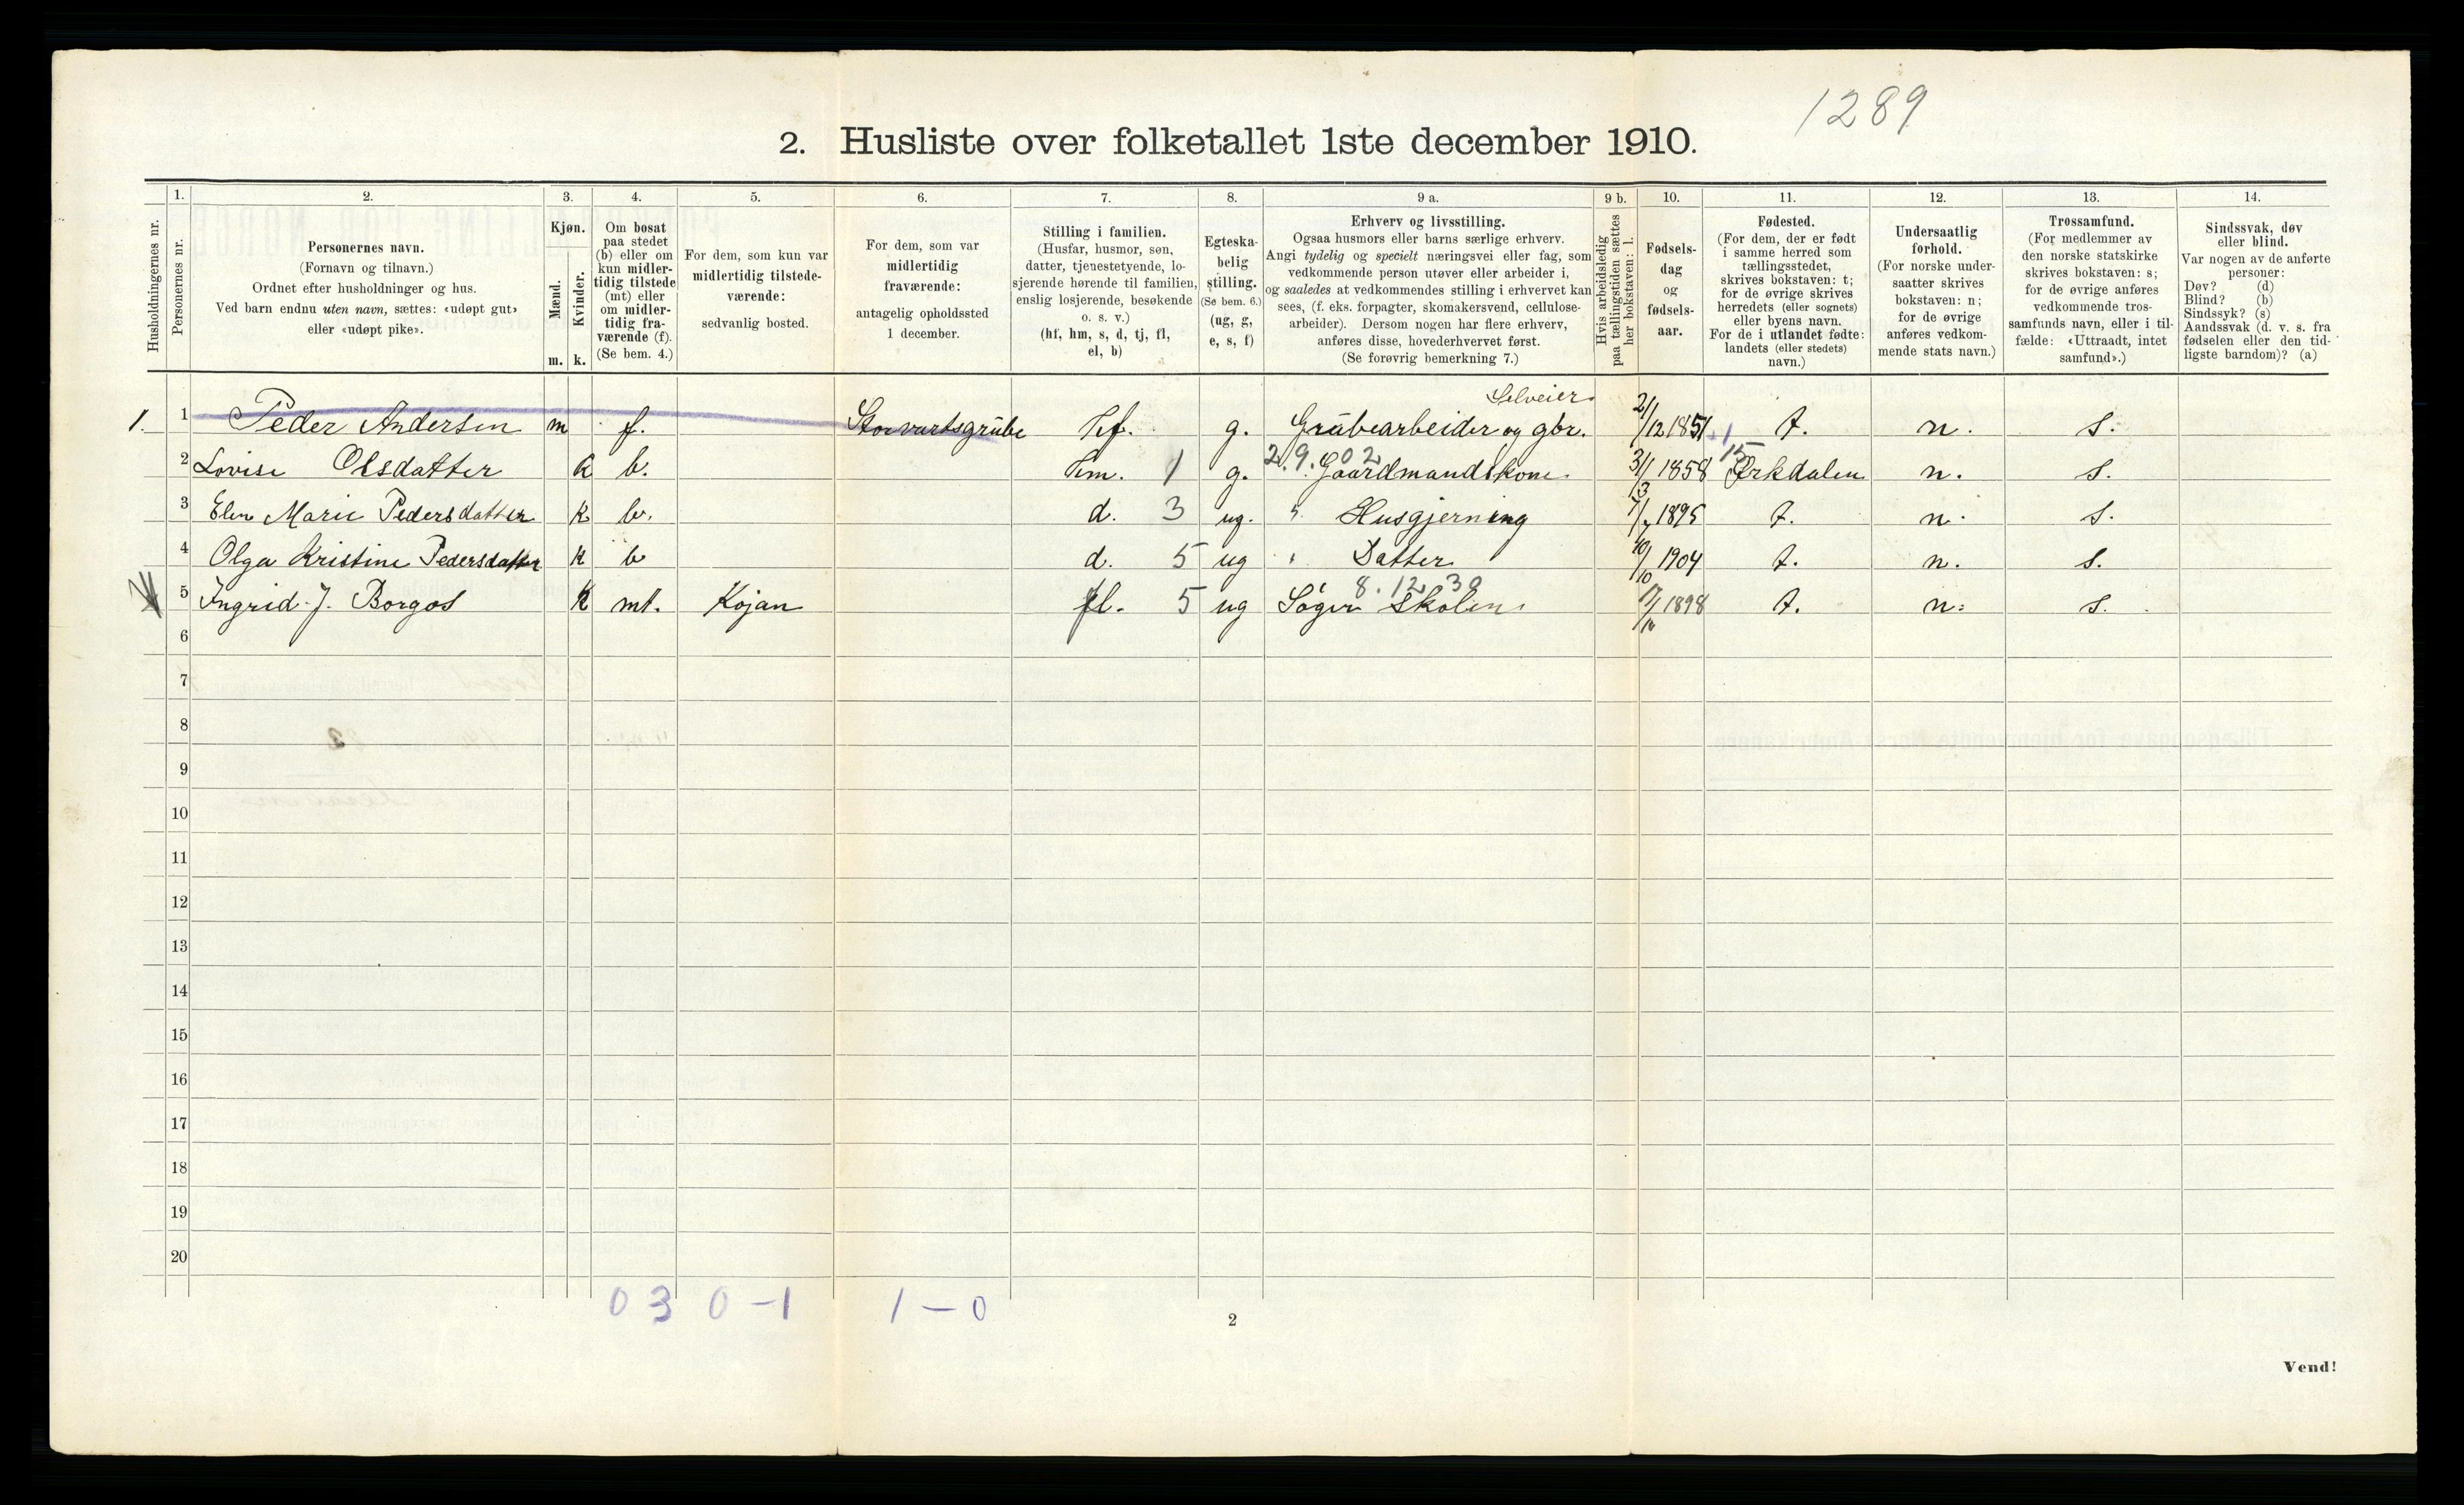 1289
2. Husliste over folketallet 1ste december 1910.
Husholdningernes nr.
1. Personernes nr.
2. Personernes navn.
(Fornavn og tilnavn.)
Ordnet efter husholdninger og hus.
Ved barn endnu uten navn, sættes: «udøpt gut»
eller «udøpt pike».
3. Kjøn.
Mænd. m.
Kvinder. k.
4. Om bosat
paa stedet
(b) eller om
kun midler-
tidig tilstede
(mt) eller
om midler-
tidig fra-
værende (f).
(Se bem. 4.)
5. For dem, som kun var
midlertidig tilstede-
værende:
sedvanlig bosted.
6. For dem, som var
midlertidig
fraværende:
antagelig opholdssted
1 december.
7. Stilling i familien.
(Husfar, husmor, søn,
datter, tjenestetyende, lo-
sjerende hørende til familien,
enslig losjerende, besøkende
o. s. v.)
(hf, hm, s, d, tj, fl,
el, b)
8. Egteska-
belig
stilling.
(Se bem. 6.)
(ug, g,
e, s, f)
9 a. Erhverv og livsstilling.
Ogsaa husmors eller barns særlige erhverv.
Angi tydelig og specielt næringsvei eller fag, som
vedkommende person utøver eller arbeider i,
og saaledes at vedkommendes stilling i erhvervet kan
sees, (f. eks. forpagter, skomakersvend, cellulose-
arbeider). Dersom nogen har flere erhverv,
anføres disse, hovederhvervet først.
(Se forøvrig bemerkning 7.)
9 b. Hvis arbeidsledig
paa tællingstiden sættes
her bokstaven: l.
10. Fødsels-
dag
og
fødsels-
aar.
11. Fødested.
(For dem, der er født
i samme herred som
tællingsstedet,
skrives bokstaven: t;
for de øvrige skrives
herredets (eller sognets)
eller byens navn.
For de i utlandet fødte:
landets (eller stedets)
navn.)
12. Undersaatlig
forhold.
(For norske under-
saatter skrives
bokstaven: n;
for de øvrige
anføres vedkom-
mende stats navn.)
13. Trossamfund.
(For medlemmer av
den norske statskirke
skrives bokstaven: s;
for de øvrige anføres
vedkommende tros-
samfunds navn, eller i til-
fælde: «Uttraadt, intet
samfund».)
14. Sindssvak, døv
eller blind.
Var nogen av de anførte
personer:
Døv? (d)
Blind? (b)
Sindssyk? (s)
Aandssvak (d. v. s. fra
fødselen eller den tid-
ligste barndom)? (a)
Selveier
1. 1 Peder Andersen m f. Storvartsgrube hf. g. Grubearbeider og gbr. 21/12 1851 t. n. s.
2.9.02 15
2 Lovise Olsdatter k b. hm. 1 g. Gaardmandskone. 3/1 1858 Ørkdalen n. s.
3 Elen Marie Pedersdatter k b. d. 3 ug. " Husgjerning 1895 t. n. s.
4 Olga Kristine Pedersdatter k b d. 5 ug " Datter 10/10 1904 t. n. s.
8.12.30
5 Ingrid J. Borgos k mt. Kojan fl. 5 ug Søger Skolen. 1898 t. n. s.
6
7
8
9
10
11
12
13
14
15
16
17
18
19
20
0 3 0-1 1-0
2
Vend!